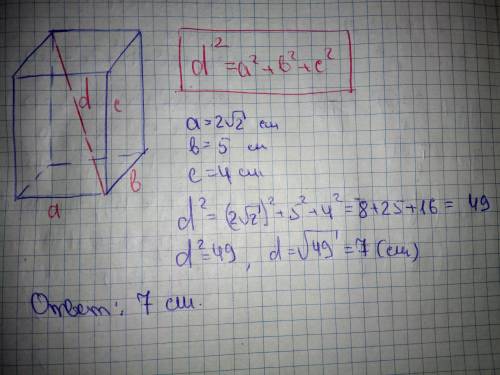 d² = a² + b² + c²
d
c
a = 2√2 см
b = 5 см
c = 4 см
в
a
d² = (2√2)² + 5² + 4² = 8 + 25 + 16 = 49
d² = 49, d = √49 = 7 (см)
Ответ: 7 см.